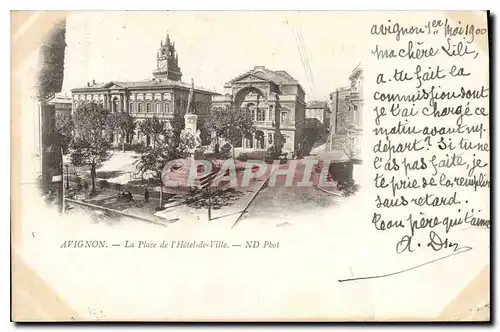 avignon 1er Mai 1900
ma chère Lili,
a-tu fait la
commission dont
je t'ai chargé ce
matin avant my
départ? Si tu ne
l'as pas faite, je
te prie de la remplir
sans retard.
Ton père qui t'aime
A.
CPRA
AVIGNON. — La Place de l'Hôtel-de-Ville. — ND Phot